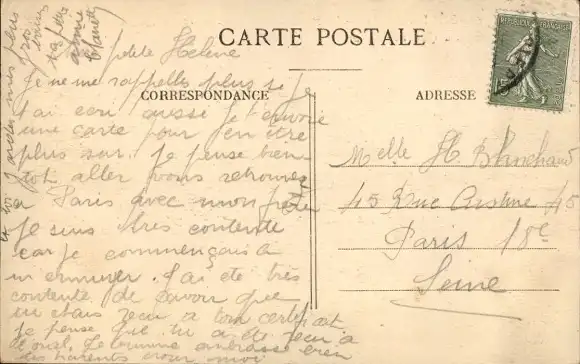 CARTE POSTALE
CORRESPONDANCE
ADRESSE
REPUBLIQUE FRANÇAISE
petite Hélène
Je ne me rappelles plus si je
t'ai écri aussi je t'envoie
une carte pour j'en être
plus sur. Je pense bien-
tot aller vous retrouver
a Paris avec mon
je suis très contente
car je commençais a
m'ennuyer. J'ai été très
contente de savoir que
tu étais recu a ton certificat
Je pense que tu a été recu a
l'oral.
bien
tes parents pour moi
Melle H Blanchard
45 Rue Custine 45
Paris 18e
Seine